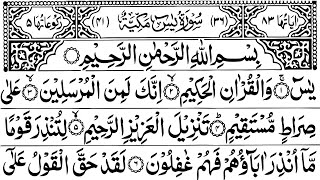 اٰیاتها ۸۳ (۳۶) سُوْرَةُ يٰسٓ مَكِّيَّةٌ (۴۱) رکوعاتها ۵
بِسْمِ اللّٰهِ الرَّحْمٰنِ الرَّحِيْمِ
يٰسٓ ۝۱ وَالْقُرْاٰنِ الْحَكِيْمِ ۝۲ اِنَّكَ لَمِنَ الْمُرْسَلِيْنَ ۝۳ عَلٰى
صِرَاطٍ مُّسْتَقِيْمٍ ۝۴ تَنْزِيْلَ الْعَزِيْزِ الرَّحِيْمِ ۝۵ لِتُنْذِرَ قَوْمًا
مَّاۤ اُنْذِرَ اٰبَآؤُهُمْ فَهُمْ غٰفِلُوْنَ ۝۶ لَقَدْ حَقَّ الْقَوْلُ عَلٰٓى